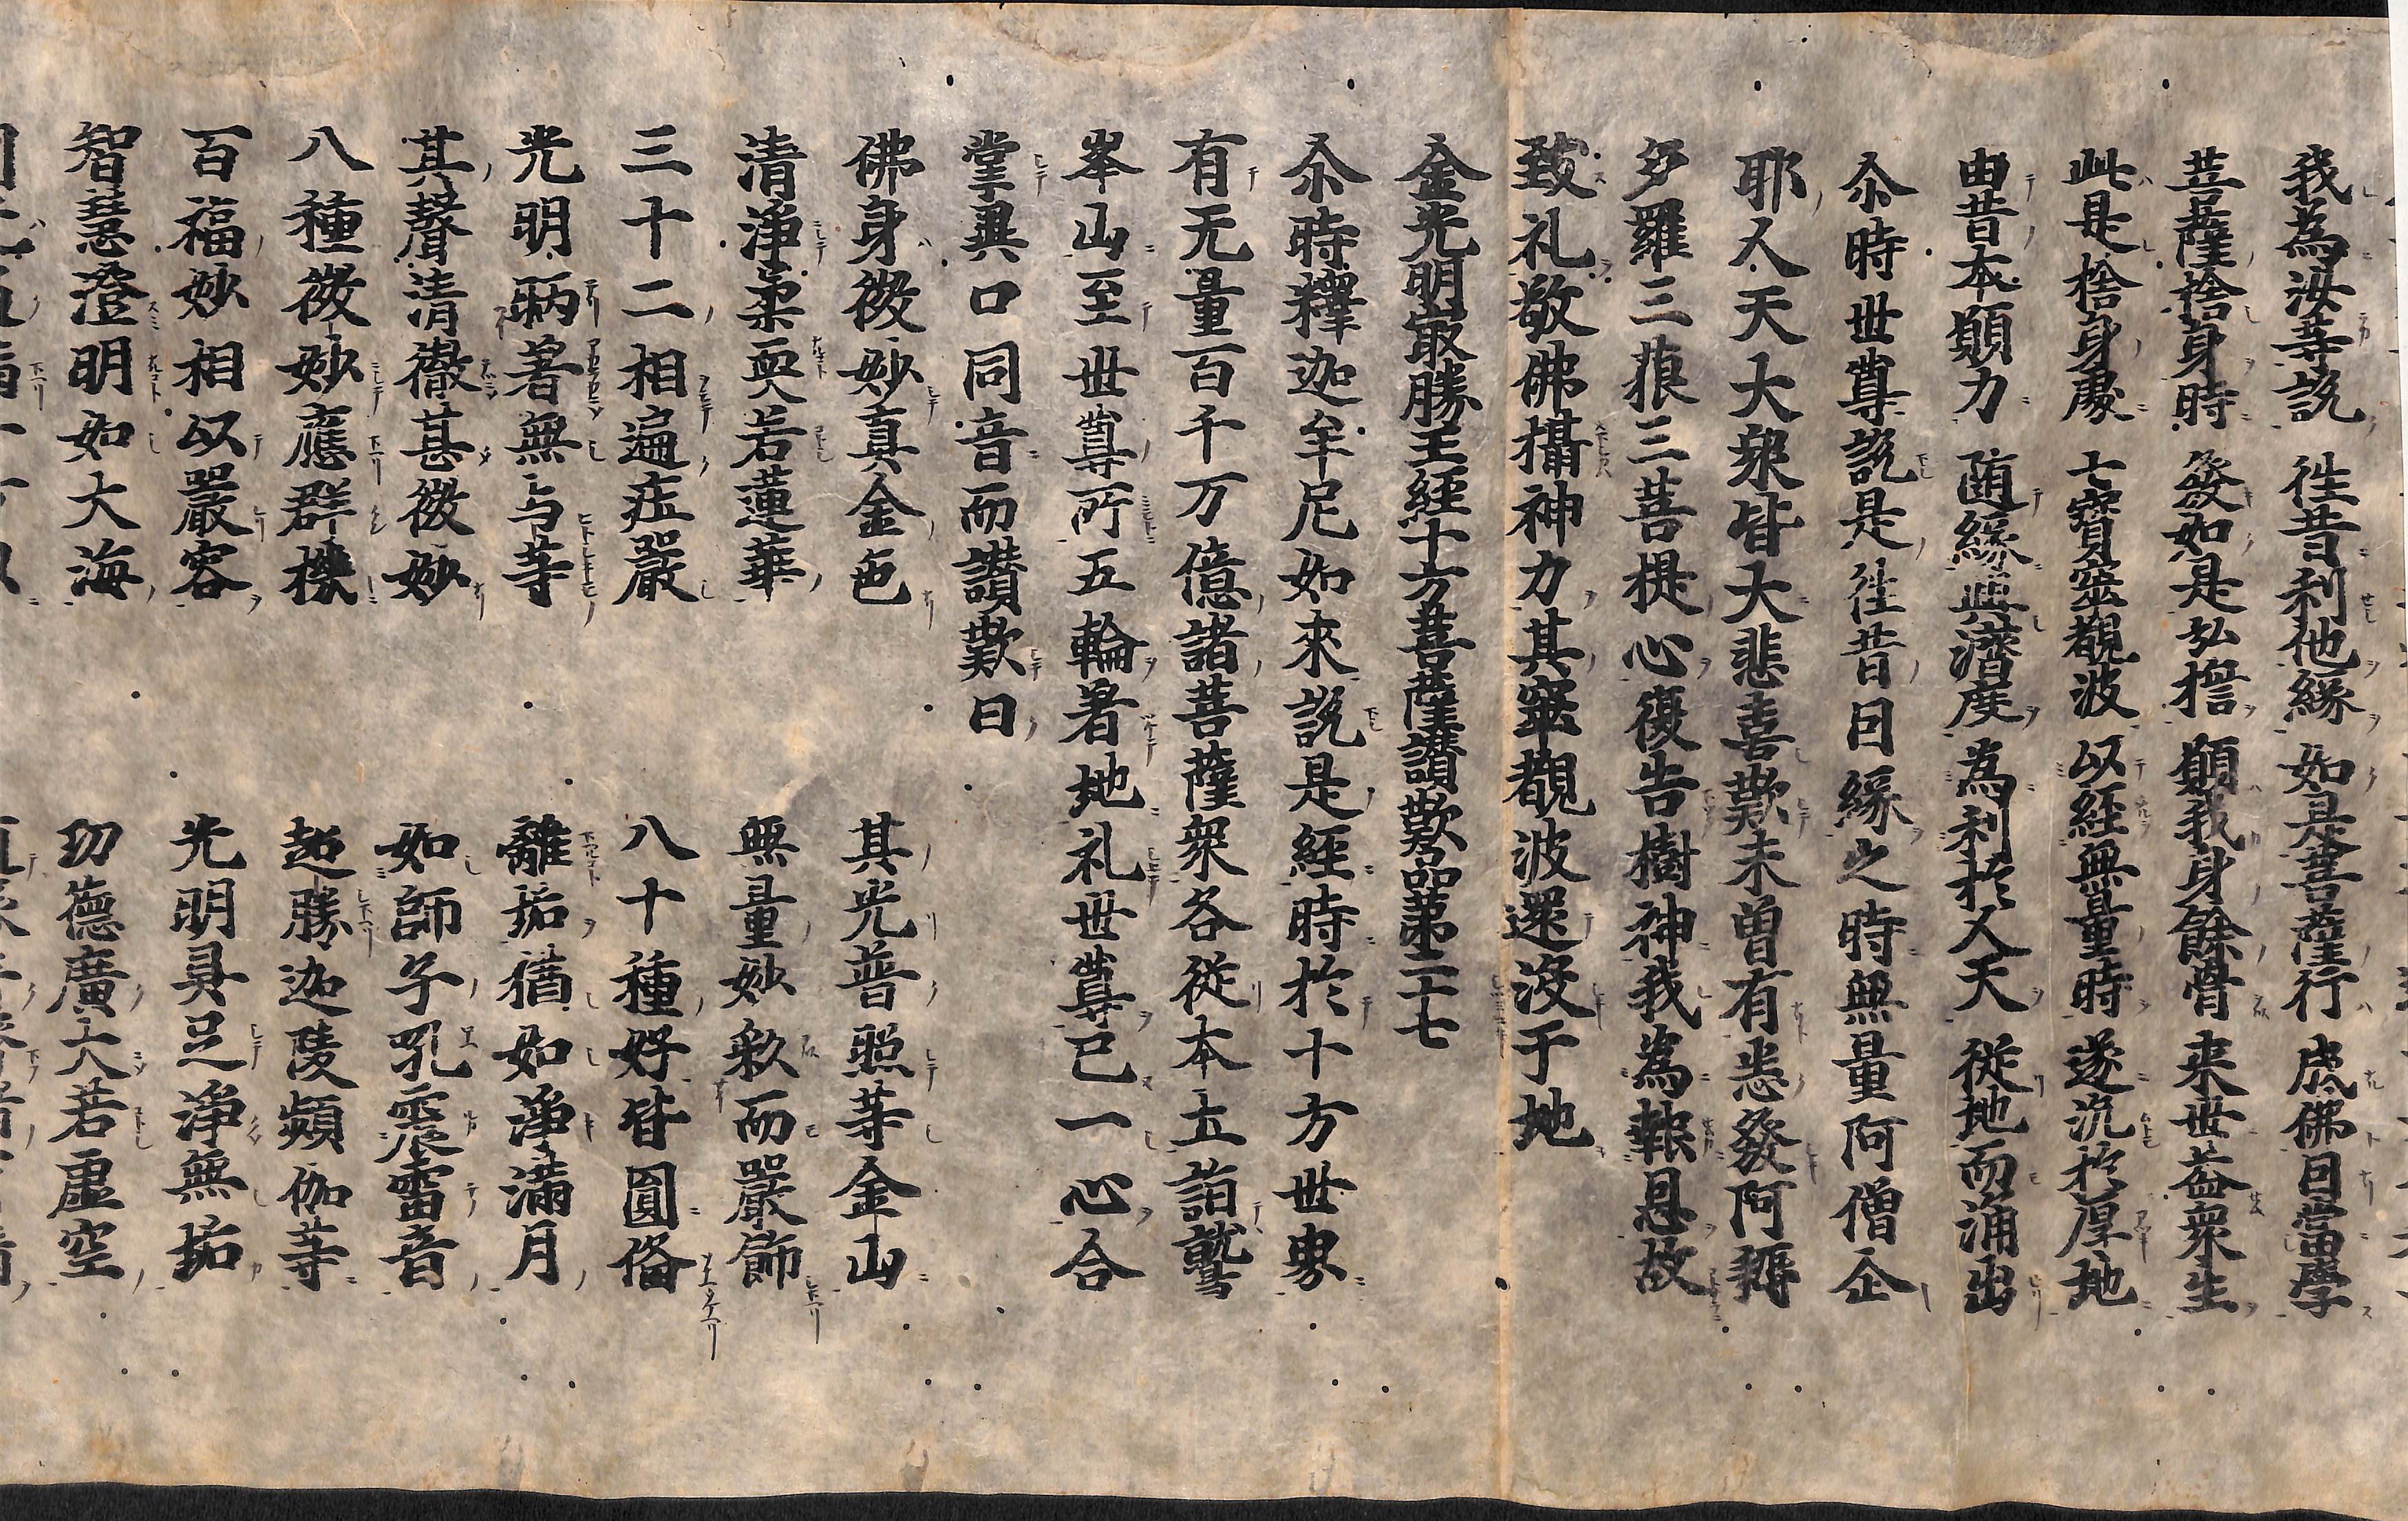 我為汝等說　徃昔利他緣　如是菩薩行　成佛因當學
菩薩捨身時　發如是弘擔　願我身餘骨　来世益衆生
此是捨身處　七寳窣覩波　以経無量時　遂沉於厚地
由昔本願力　随緣興濟度　為利於人天　従地而涌出
尒時世尊說是徃昔因緣之時無量阿僧企
耶人天大衆皆大悲喜歎未曾有悉發阿耨
多羅三藐三菩提心復告樹神我為報恩故
致礼敬佛攝神力其窣覩波還沒于地
金光明最勝王経十方菩薩讃歎品第二十七
尒時釋迦牟尼如來說是経時於十方世界
有无量百千万億諸菩薩衆各従本土詣鷲
峯山至世尊所五輪著地礼世尊已一心合
掌異口同音而讃歎曰
佛身微妙真金色　其光普照等金山
清淨柔耎若蓮華　無量妙彩而嚴飾
三十二相遍荘嚴　八十種好皆圓俻
光明昞著無与等　離垢猶如淨滿月
其聲清徹甚微妙　如師子吼震雷音
八種微妙應群機　超勝迦陵頻伽等
百福妙相以嚴容　光明具足淨無垢
智慧澄明如大海　功德廣大若虛空